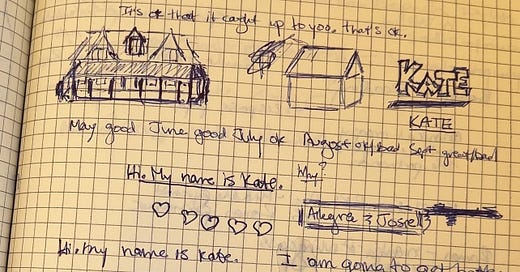 It's ok that it caught up to you, that's ok.
KATE
KATE
May good June good July ok August ok/bad Sept great/bad
Why?
Hi. My name is Kate.
Allegra & Josie
Hi. My name is Kate. I am going to get